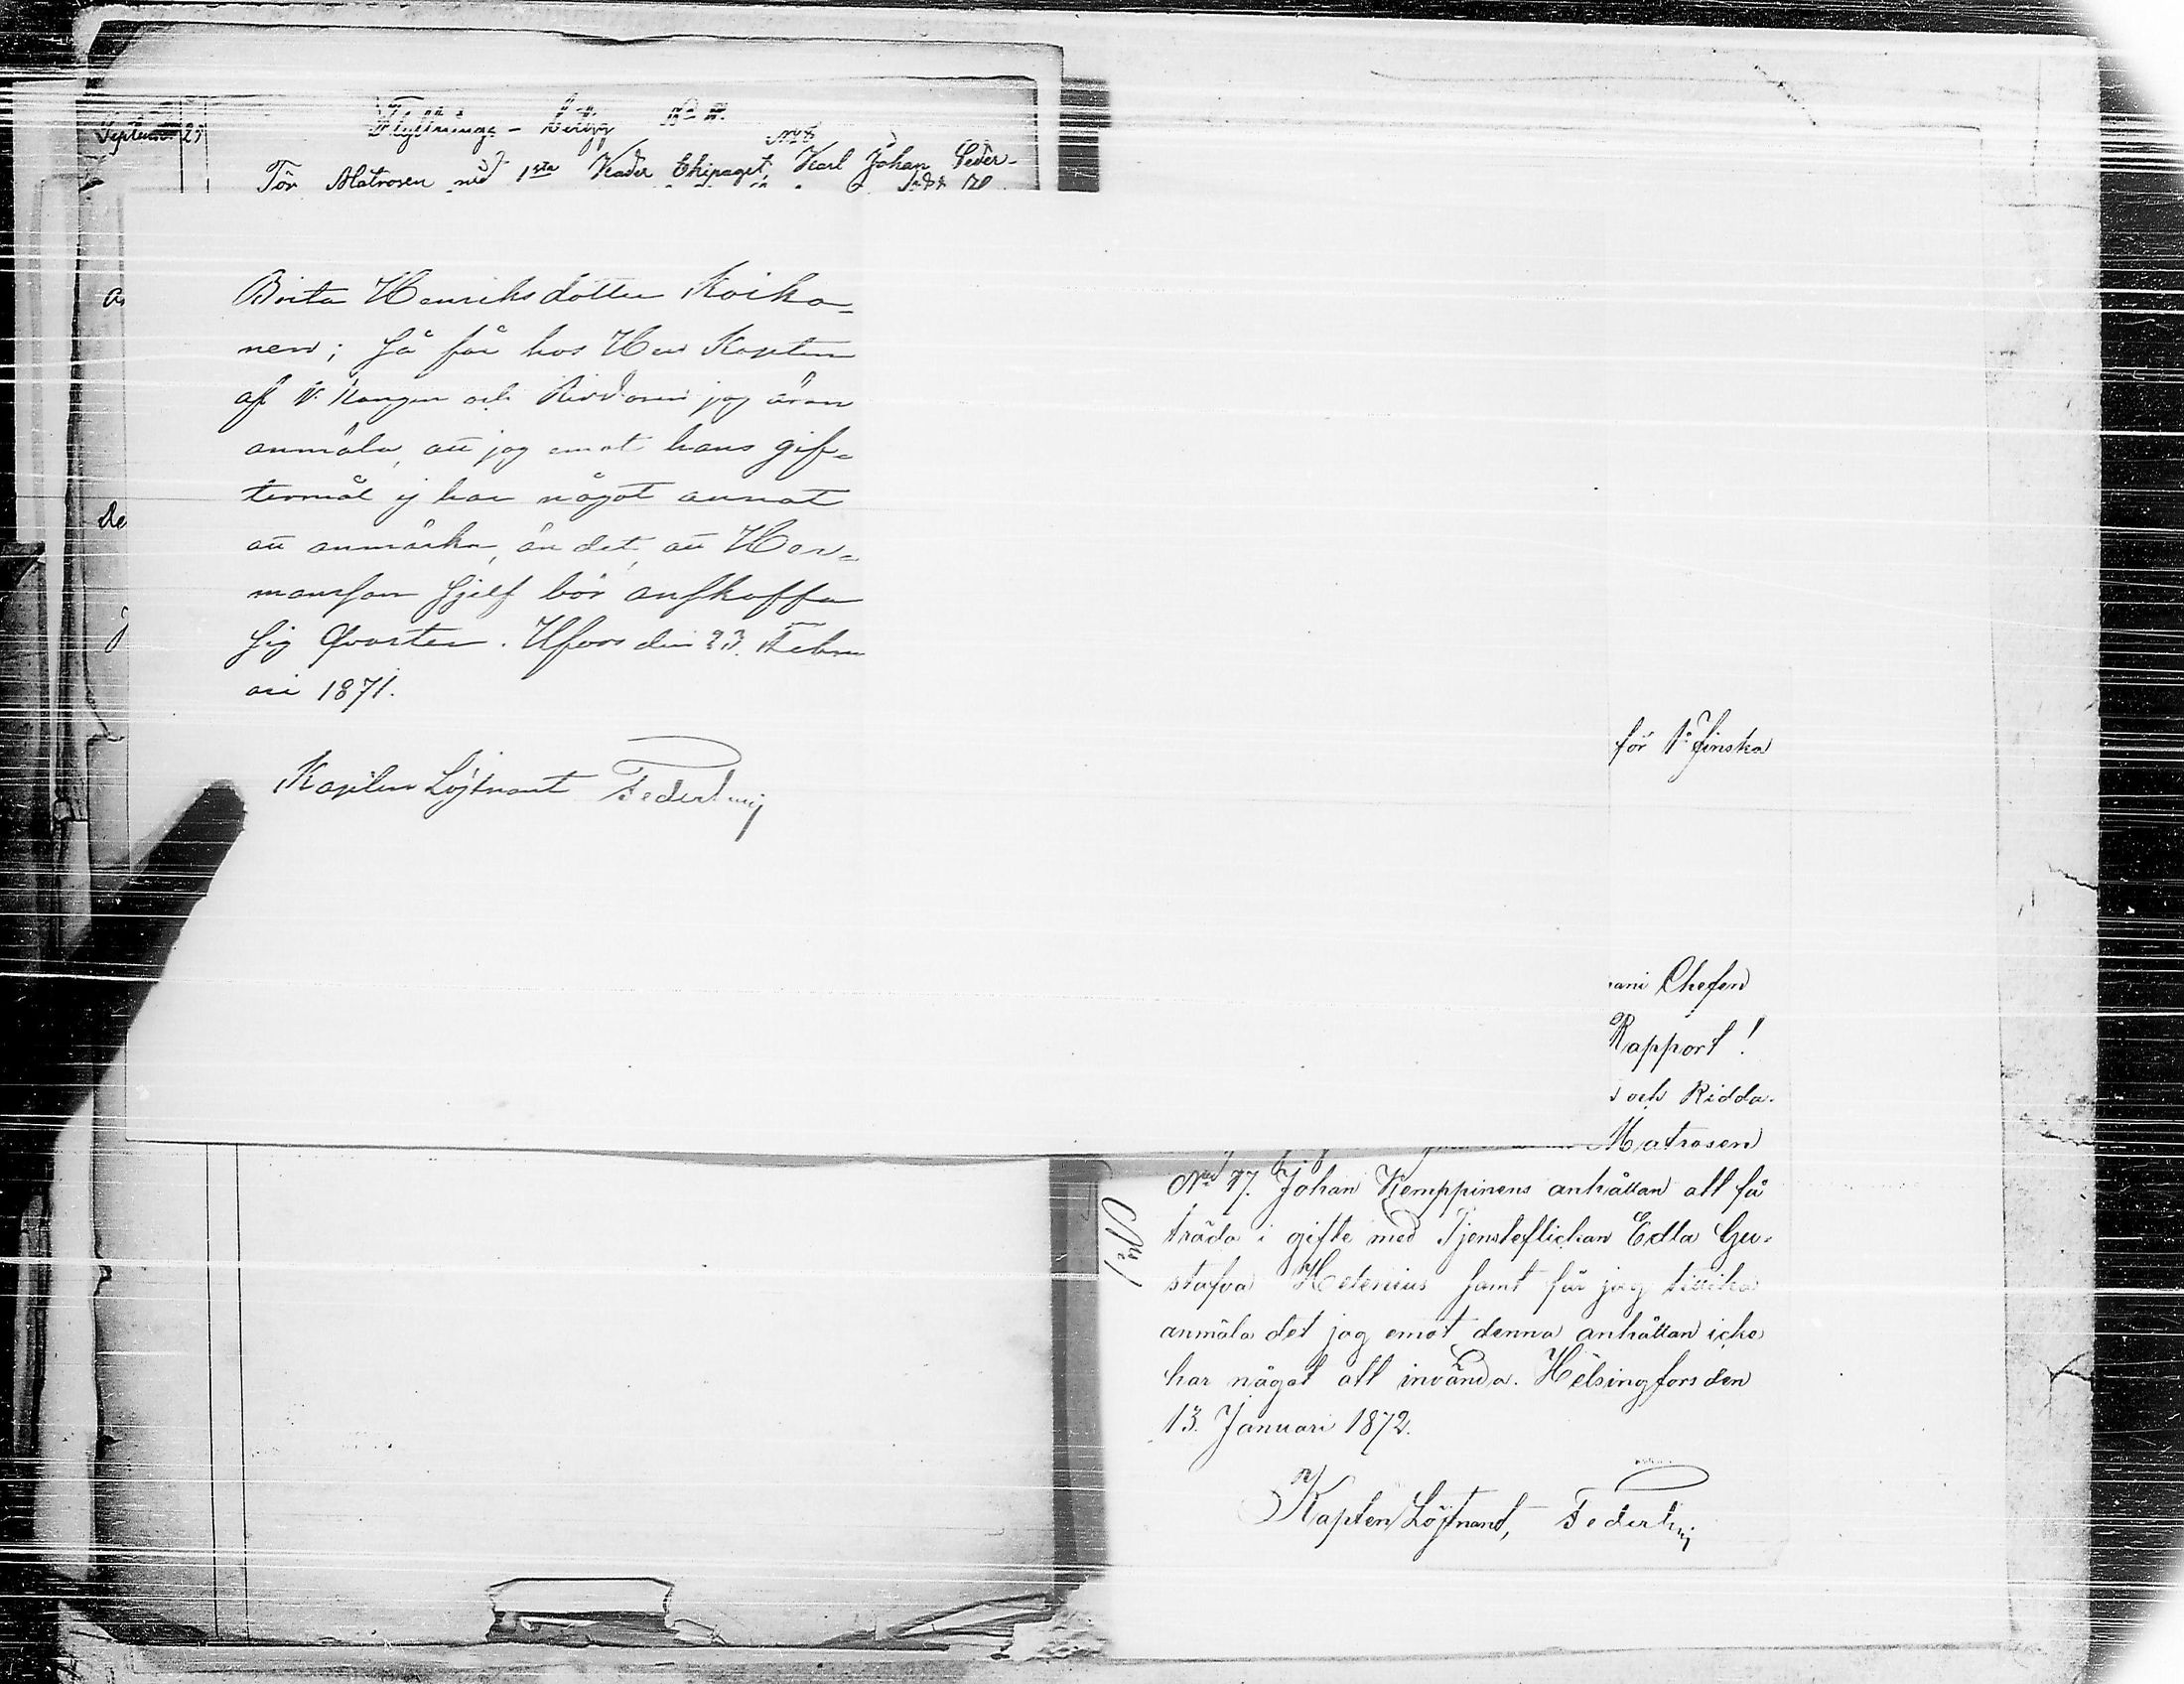 September 25
Flyttnings-betyg
För Matrosen vid 1sta Kader Ekipaget, Karl Johan Seder-
Birta Henriksdotter Koiko-
nen; så får hos Herr Kapten
af 1: Rangen och Riddaren jag äran
anmäla, att jag emot hans gif-
termål ej har något annat
att anmärka, än det, att Her-
mansson sjelf bör anskaffa
sig Qvarter. Hfors den 23. Febru
ari 1871.
Kapten Löjtnant
för 1: Finska
Chefen
Rapport!
och Ridda-
Matrosen
No 77. Johan Kemppinens anhållan att få
träda i gifte med Tjensteflickan Edla Gu-
stafva Helenius samt får jag tillika
anmäla det jag emot denna anhållan icke
har något att invända. Helsingfors den
13. Januari 1872.
Kapten Löjtnant,